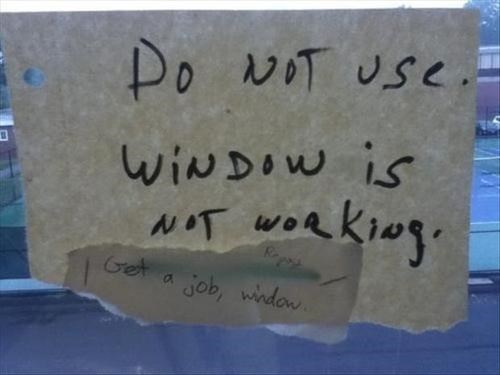 Do NOT use.
WiNDOW is
NOT WORKiNg.
Get a job, window.